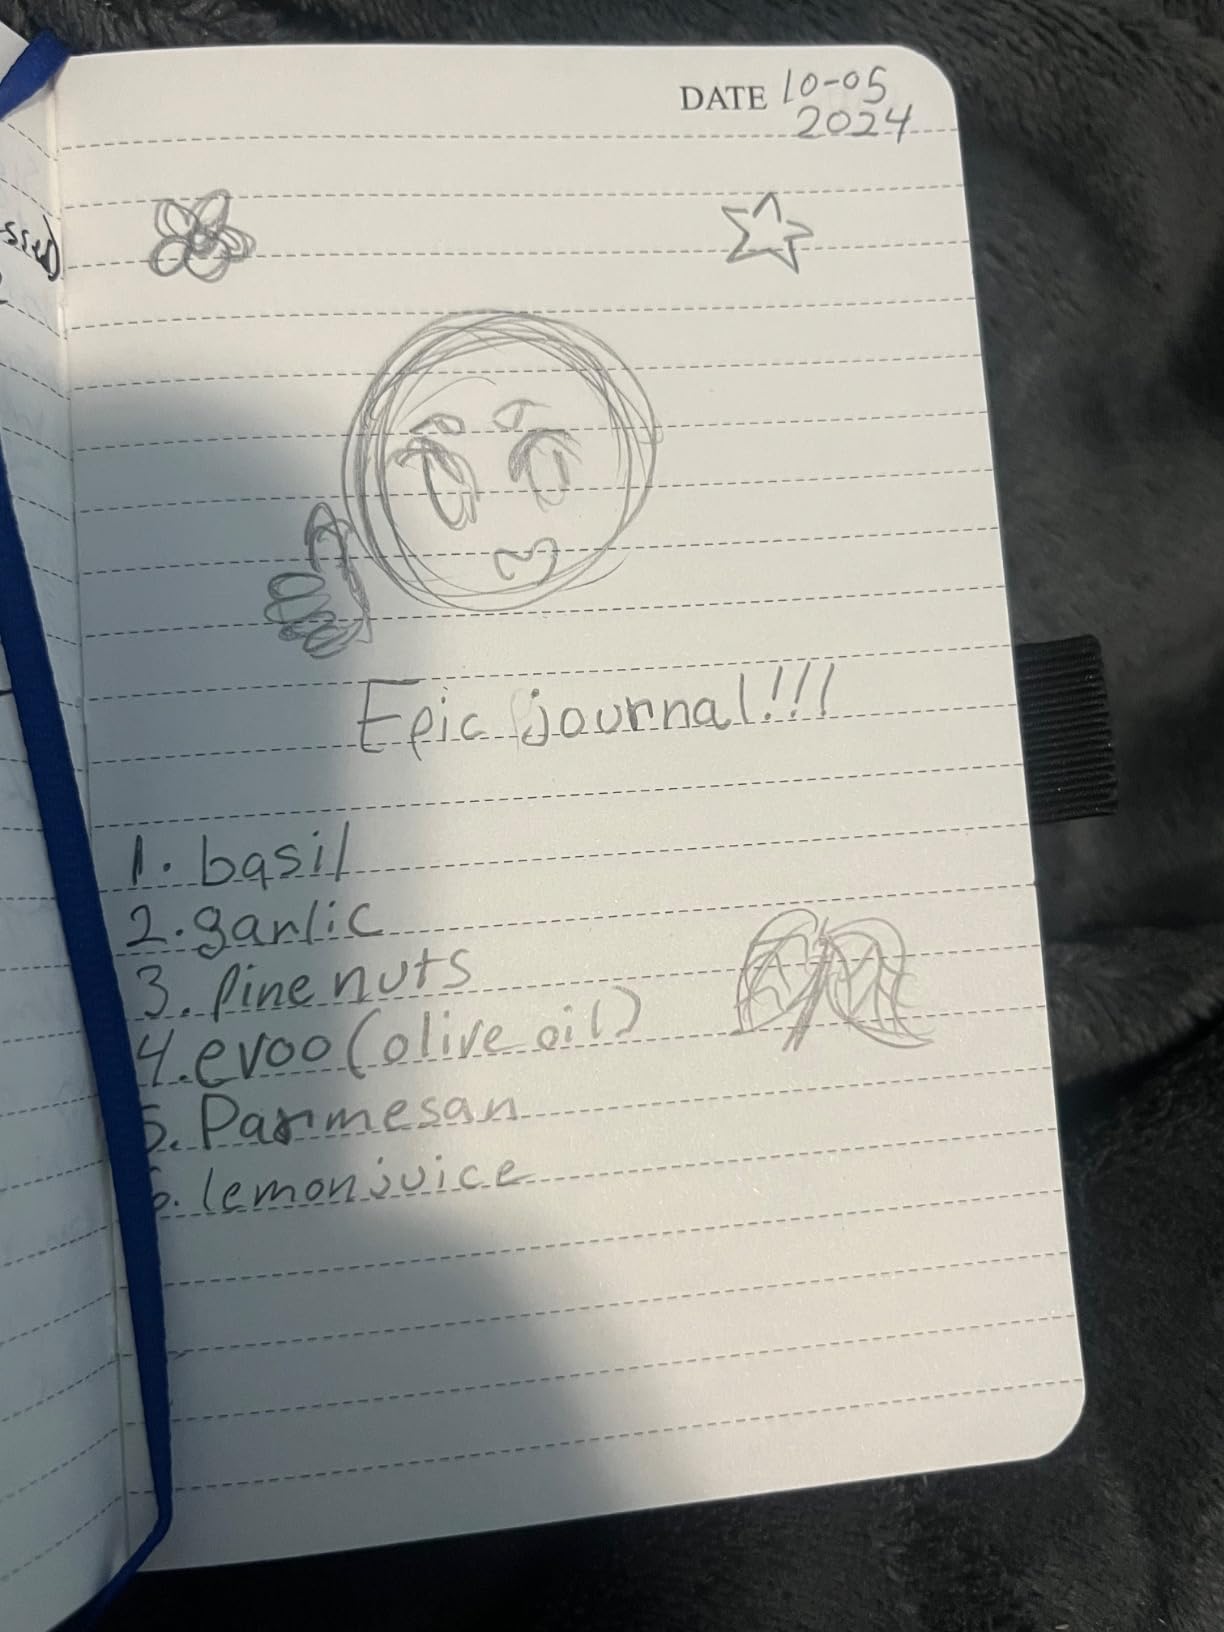 DATE 10-05
2024
ssed
Epic journal!!!
1. basil
2. garlic
3. pine nuts
4. evoo (olive oil)
5. Parmesan
6. lemon juice